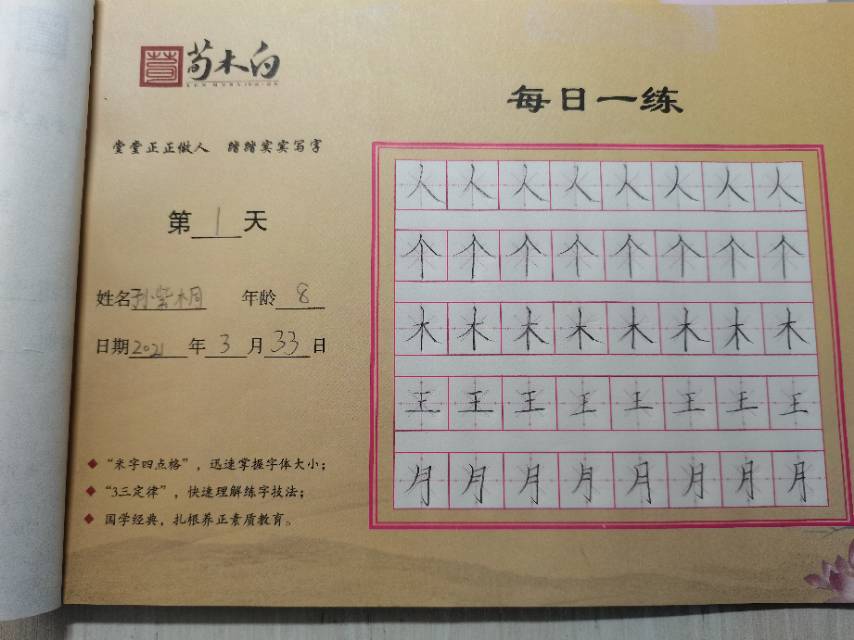 荀木白
每日一练
堂堂正正做人 踏踏实实写字
第1天
姓名孙紫桐 年龄8
日期2021年3月33日
◆"米字四点格",迅速掌握字体大小;
◆"3三定律",快速理解练字技法;
◆国学经典,扎根养正素质教育。
人人人人人人人人
个个个个个个个个
木木木木木木木木
王王王王王王王王
月月月月月月月月